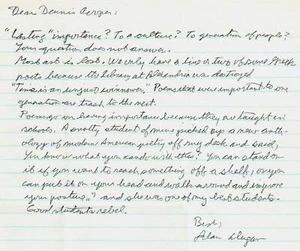 Dear Dennis Cooper:
"Lasting" importance? To a culture? To generations of people?
Your question does not answer.
Most art is lost. We only have a line or two of some Greek
poets because the library at Alexandria was destroyed.
"Time is an unjust winnower." Poems that were important to one
generation are trash to the next.
Poems go on having importance because they are taught in
schools. A pretty student of mine picked up a new anth-
ology of modern American poetry off my desk and said,
"You know what you can do with this? You can stand on
it if you want to reach something off a shelf, or you
can put it on your head and walk around and improve
your posture," and she was one of my best students.
Good students rebel.
Best,
Alan Dugan